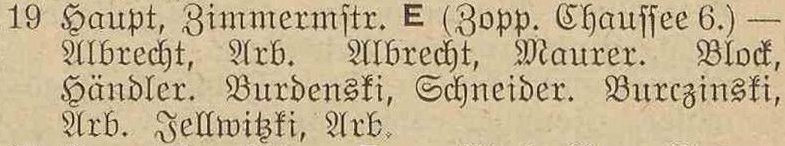 19 Haupt, Zimmermſtr. E (Zopp. Chauſſee 6.) —
Albrecht, Arb. Albrecht, Maurer. Block,
Händler. Burdenski, Schneider. Burczinski,
Arb. Jellwitzki, Arb.